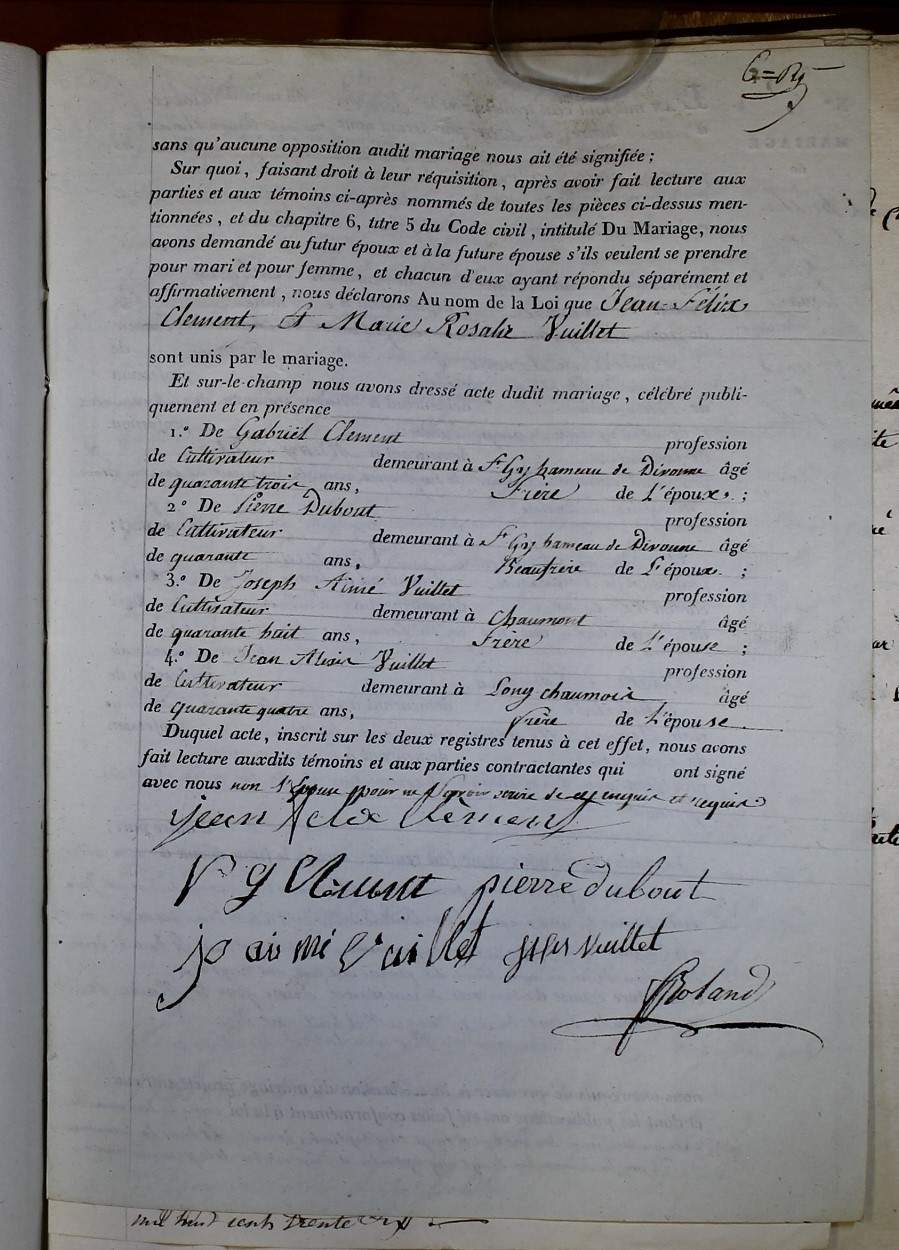 sans qu'aucune opposition audit mariage nous ait été signifiée ;
Sur quoi, faisant droit à leur réquisition, après avoir fait lecture aux
parties et aux témoins ci-après nommés de toutes les pièces ci-dessus men-
tionnées, et du chapitre 6, titre 5 du Code civil, intitulé Du Mariage, nous
avons demandé au futur époux et à la future épouse s'ils veulent se prendre
pour mari et pour femme, et chacun d'eux ayant répondu séparément et
affirmativement, nous déclarons Au nom de la Loi que Jean-Félix
Clement, Et Marie Rosalie Vuillet
sont unis par le mariage.
Et sur-le-champ nous avons dressé acte dudit mariage, célébré publi-
quement et en présence
1.º De Gabriël Clement profession
de Cultivateur demeurant à St Gy hameau de Divonne âgé
de quarante trois ans, Frère de L'époux. ;
2º De Pierre Dubout profession
de Cultivateur demeurant à St Gy hameau de Divonne âgé
de quarante ans, Beaufrère de L'époux ;
3.º De Joseph Aimé Vuillet profession
de Cultivateur demeurant à Chaumont âgé
de quarante huit ans, Frère de L'épouse ;
4.º De Jean Alexis Vuillet profession
de Cultivateur demeurant à Longchaumois âgé
de quarante quatre ans, frère de L'épouse
Duquel acte, inscrit sur les deux registres tenus à cet effet, nous avons
fait lecture auxdits témoins et aux parties contractantes qui ont signé
avec nous non L'épouse pour ne savoir écrire de ce enquise et requise
jean felix Clement
g Clement pierre dubout
jo aimé Vuillet vuillet
Roland
mil huit cents trente